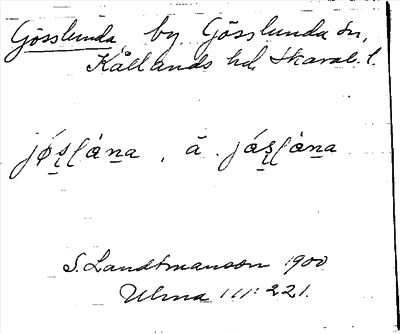 Gösslunda, by Gösslunda sn,
Kållands hd, Skarab. l.
jǿs̨ſἀṉa, å jǿs̨ſἀṉa
S. Landtmanson 1900
Ulma 111:221.